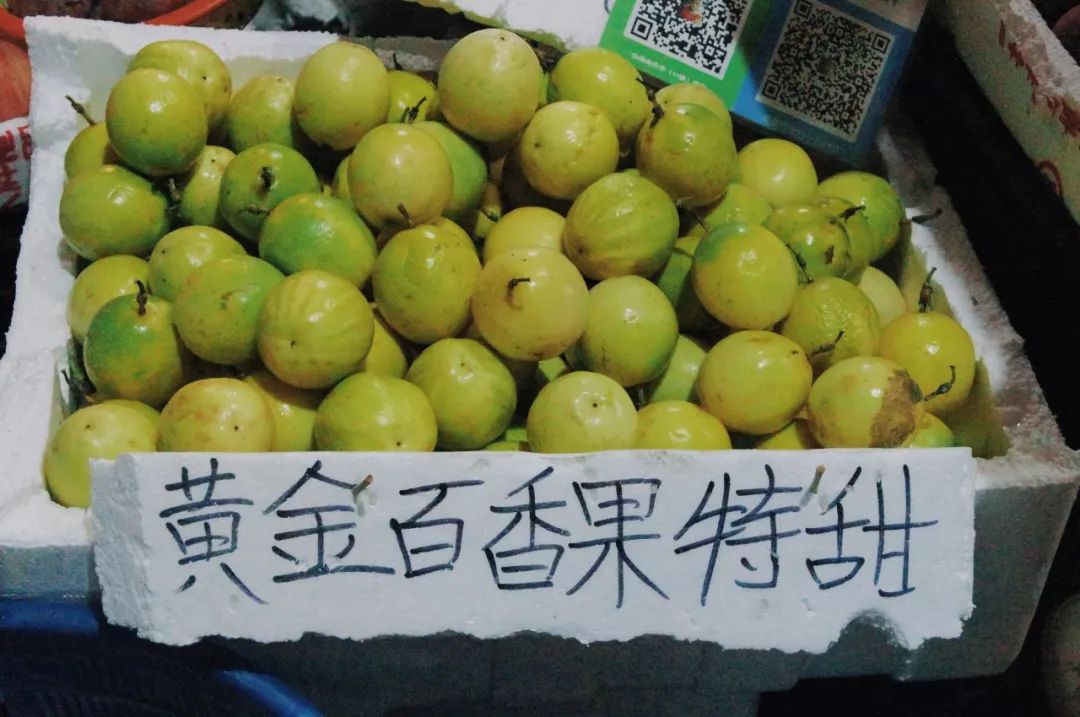 黃金百香果特甜